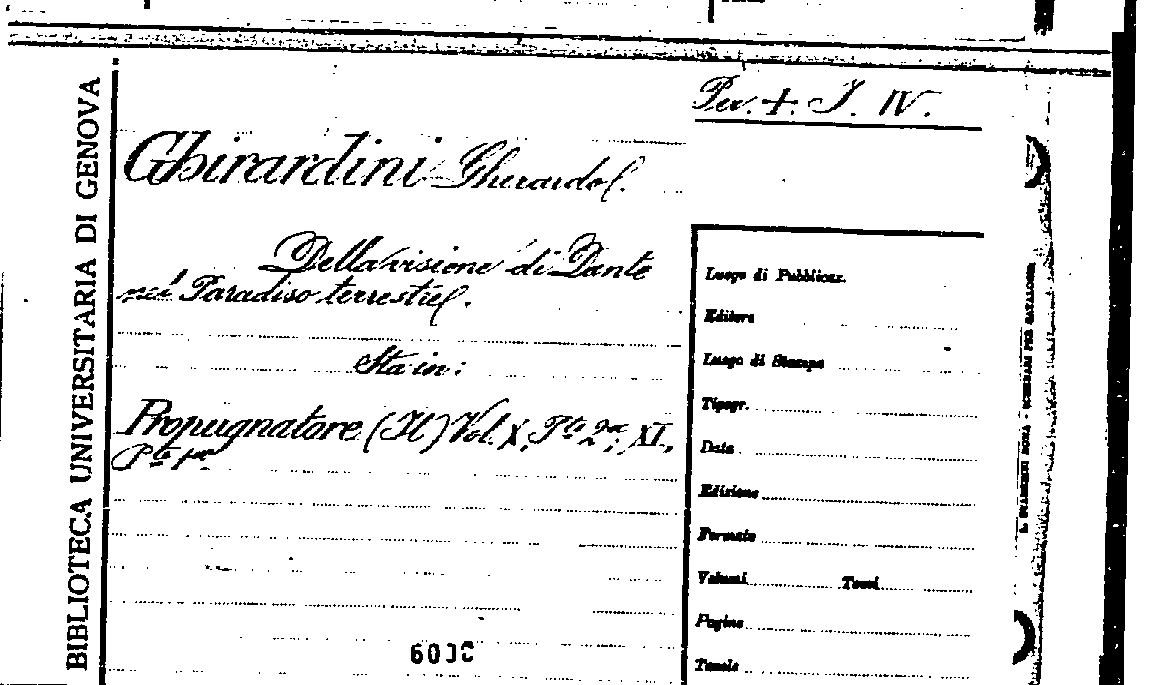 BIBLIOTECA UNIVERSITARIA DI GENOVA
Per. +. I. IV.
Ghirardini Gherardo.
Della visione di Dante
nel Paradiso terrestre.
Sta in:
Propugnatore (Il) Vol. X, Pte 2a; XI,
Pte 1a
Luogo di Pubblicaz.
Editore
Luogo di Stampa
Tipogr.
Data
Edizione
Formato
Volumi Tomi
Pagine
Tavole